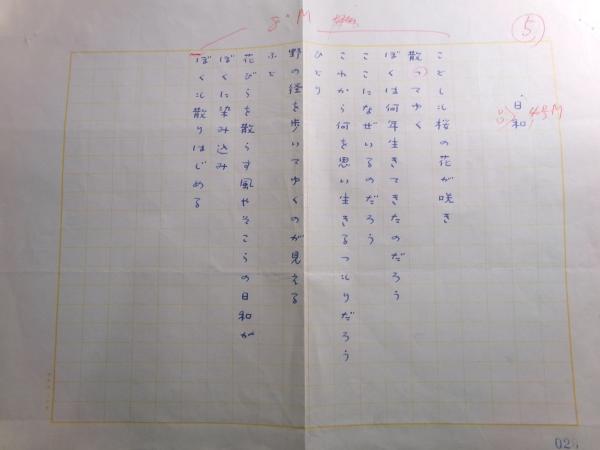 5
8 M
日和
4号M
ことしも桜の花が咲き
散ってゆく
ぼくは何年生きてきたのだろう
ここになぜいるのだろう
これから何を思い生きるつもりだろう
ひとり
野の径を歩いてゆくのが見える
ふと
花びらを散らす風やそこらの日和が
ぼくに染み込み
ぼくも散りはじめる